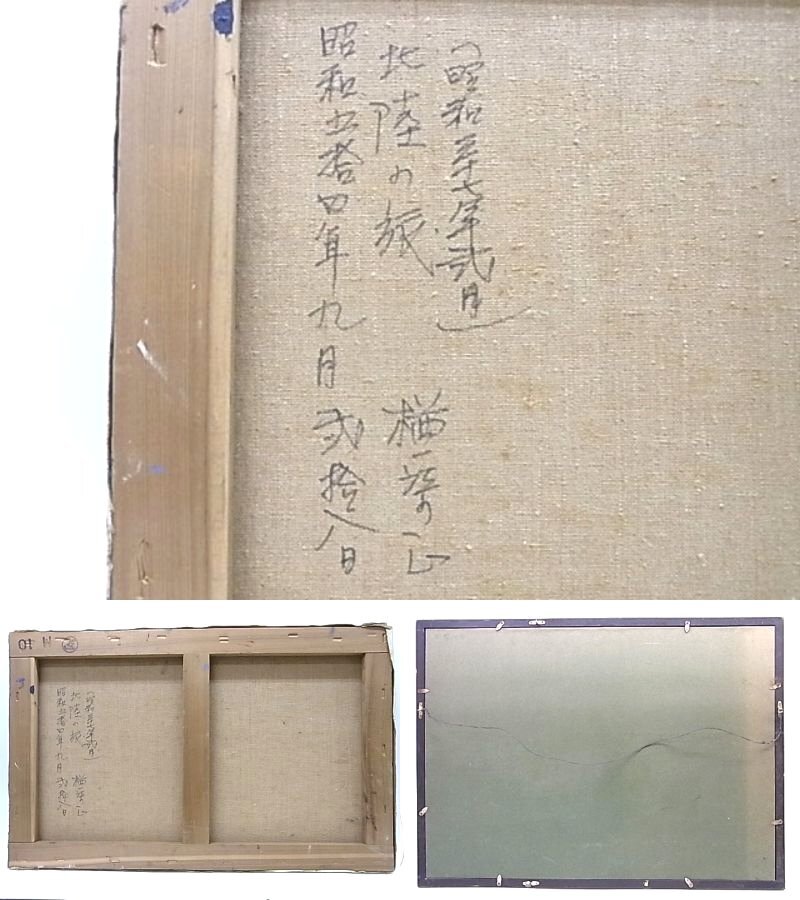 （昭和三十七年弐月）
北陸の旅
昭和五拾四年九月弐拾八日